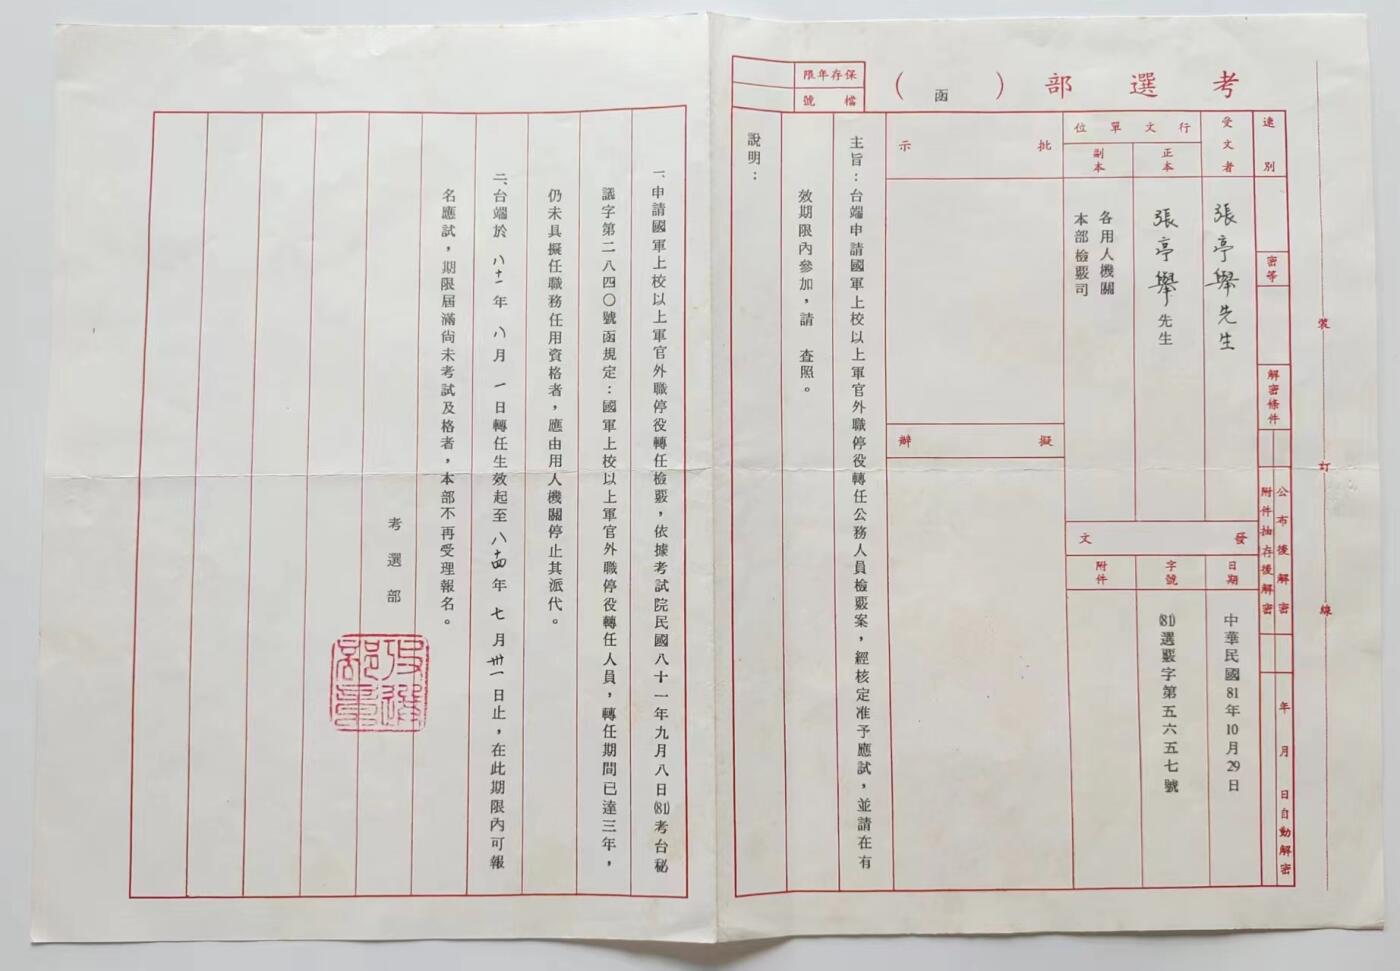 考選部（函）
保存年限
檔號
速別
密等
解密條件
公布後解密
附件抽存後解密
年 月 日自動解密
裝
訂
線
受文者
張亭舉先生
行文單位
正本
張亭舉先生
副本
各用人機關
本部檢覈司
發文
日期
中華民國81年10月29日
字號
(81)選覈字第五六五七號
附件
批示
擬辦
主旨：台端申請國軍上校以上軍官外職停役轉任公務人員檢覈案，經核定准予應試，並請在有
效期限內參加，請 查照。
說明：
一、申請國軍上校以上軍官外職停役轉任檢覈，依據考試院民國八十一年九月八日(81)考台秘
議字第二八四〇號函規定：國軍上校以上軍官外職停役轉任人員，轉任期間已達三年，
仍未具擬任職務任用資格者，應由用人機關停止其派代。
二、台端於八十一年八月一日轉任生效起至八十四年七月卅一日止，在此期限內可報
名應試，期限屆滿尚未考試及格者，本部不再受理報名。
考選部